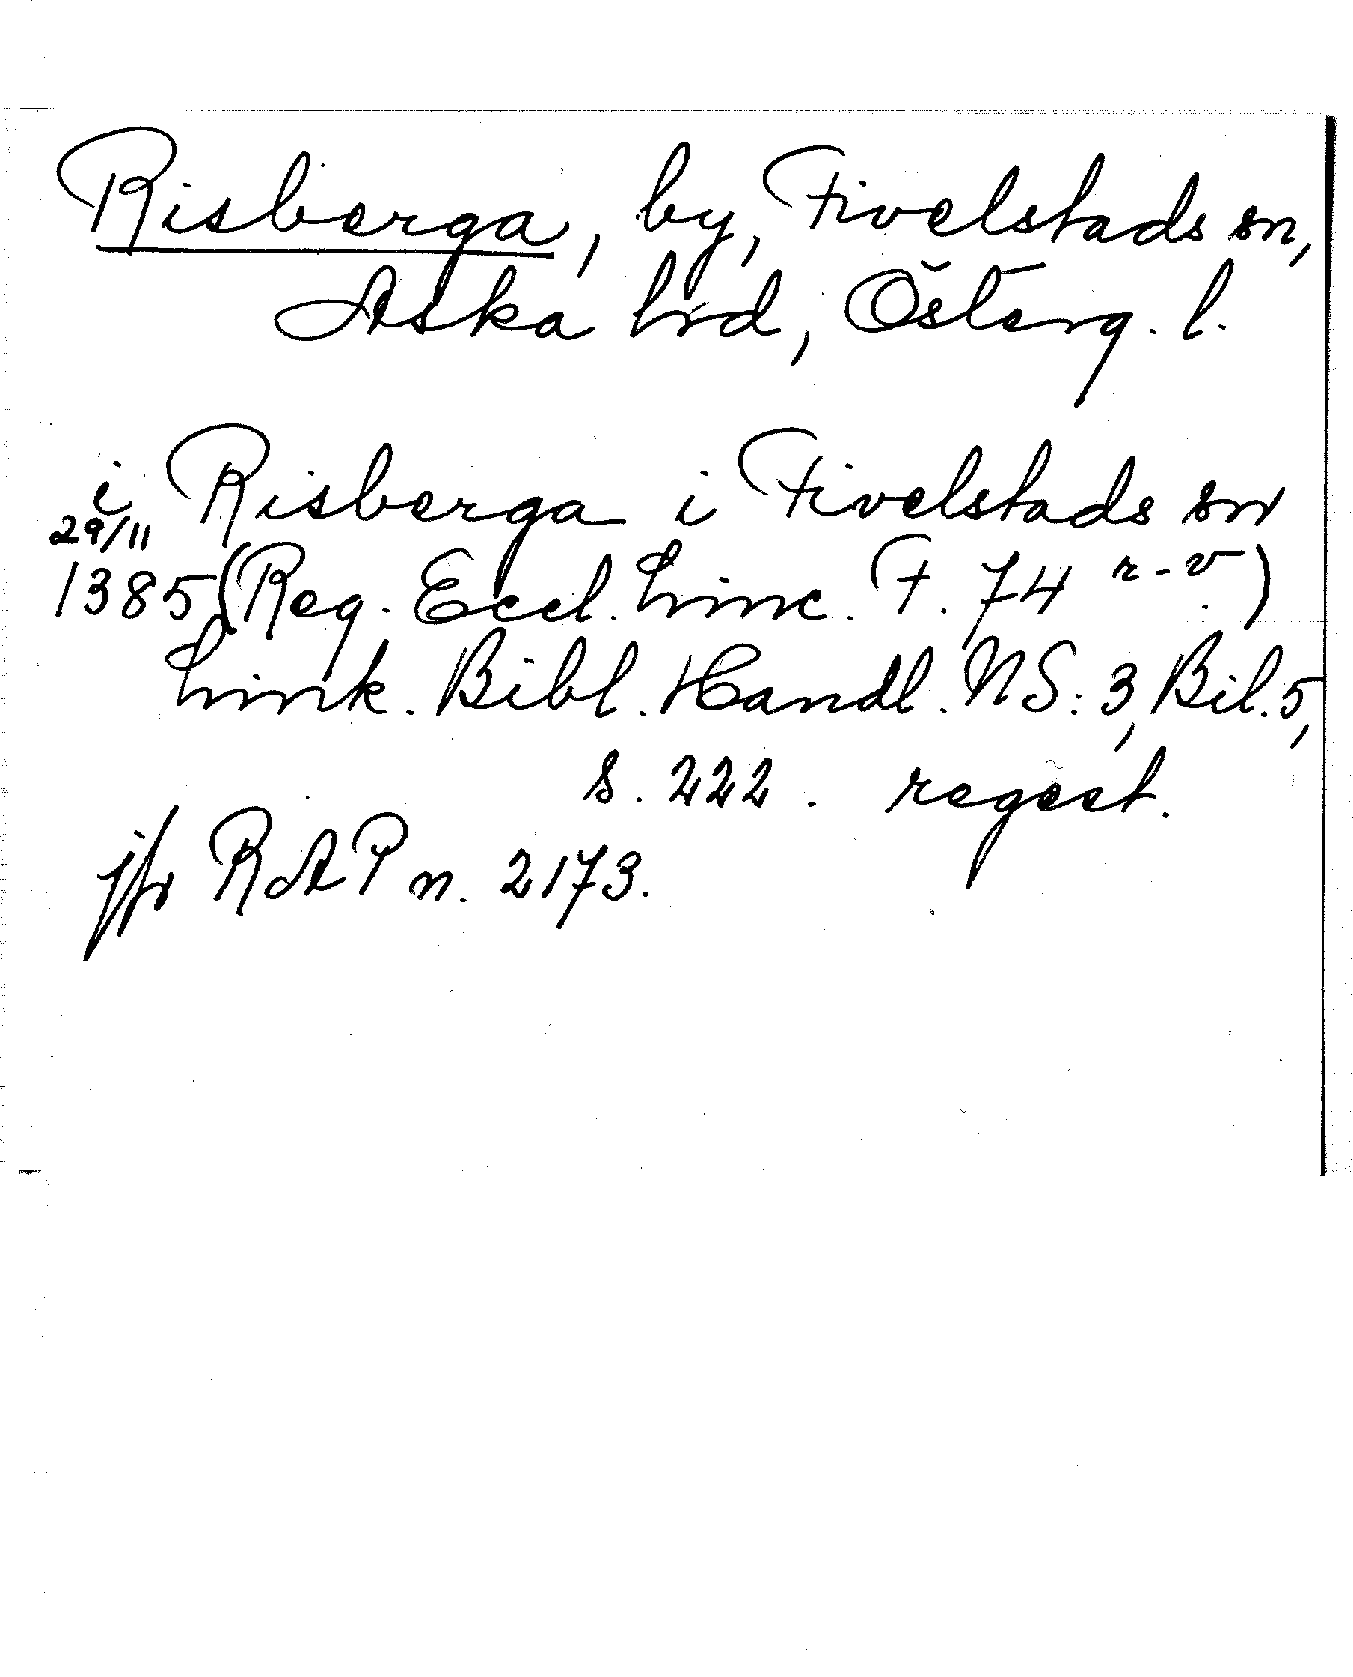 Risberga, by, Fivelstads sn,
Aska hrd, Österg. l.
i Risberga i Fivelstads sn
29/11
1385 (Reg. Eccl. Linc. F. 74 r-v)
Link. Bibl. Handl. NS: 3, Bil. 5,
s. 222. regest.
jfr RAP n. 2173.